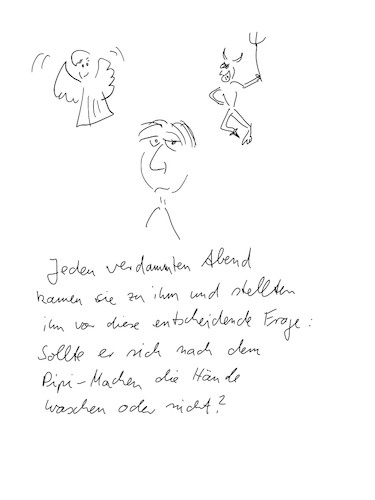 Jeden verdammten Abend
kamen sie zu ihm und stellten
ihn vor diese entscheidende Frage:
Sollte er sich nach dem
Pipi-Machen die Hände
waschen oder nicht?